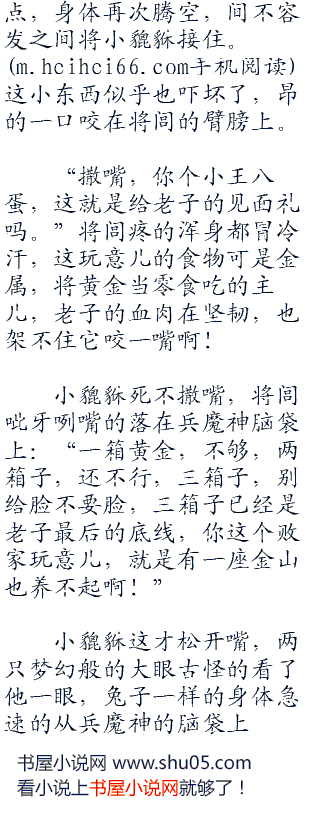 点，身体再次腾空，间不容
发之间将小貔貅接住。
(m.hcihci66.com手机阅读)
这小东西似乎也吓坏了，昂
的一口咬在将闾的臂膀上。
“撒嘴，你个小王八
蛋，这就是给老子的见面礼
吗。”将闾疼的浑身都冒冷
汗，这玩意儿的食物可是金
属，将黄金当零食吃的主
儿，老子的血肉在坚韧，也
架不住它咬一嘴啊！
小貔貅死不撒嘴，将闾
呲牙咧嘴的落在兵魔神脑袋
上：“一箱黄金，不够，两
箱子，还不行，三箱子，别
给脸不要脸，三箱子已经是
老子最后的底线，你这个败
家玩意儿，就是有一座金山
也养不起啊！”
小貔貅这才松开嘴，两
只梦幻般的大眼古怪的看了
他一眼，兔子一样的身体急
速的从兵魔神的脑袋上
书屋小说网 www.shu05.com
看小说上书屋小说网就够了！